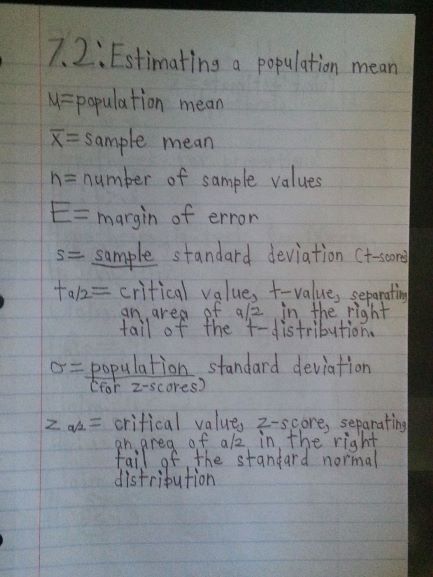 7.2: Estimating a population mean
μ=population mean
x̄=sample mean
n=number of sample values
E=margin of error
s= sample standard deviation (t-score)
ta/2= critical value, t-value, separating
an area of a/2 in the right
tail of the t-distribution.
σ=population standard deviation
(for z-scores)
z a/2= critical value, z-score, separating
an area of a/2 in the right
tail of the standard normal
distribution